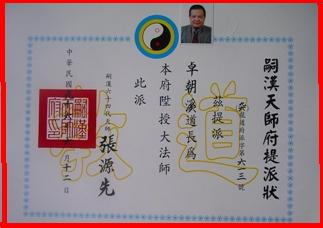 嗣漢天師府提派狀
字第六一三號
茲提派
卓朝溪道長為
本府陞授大法師
此派
嗣漢六十四代天師
張源先
中華民國
月十二日
道